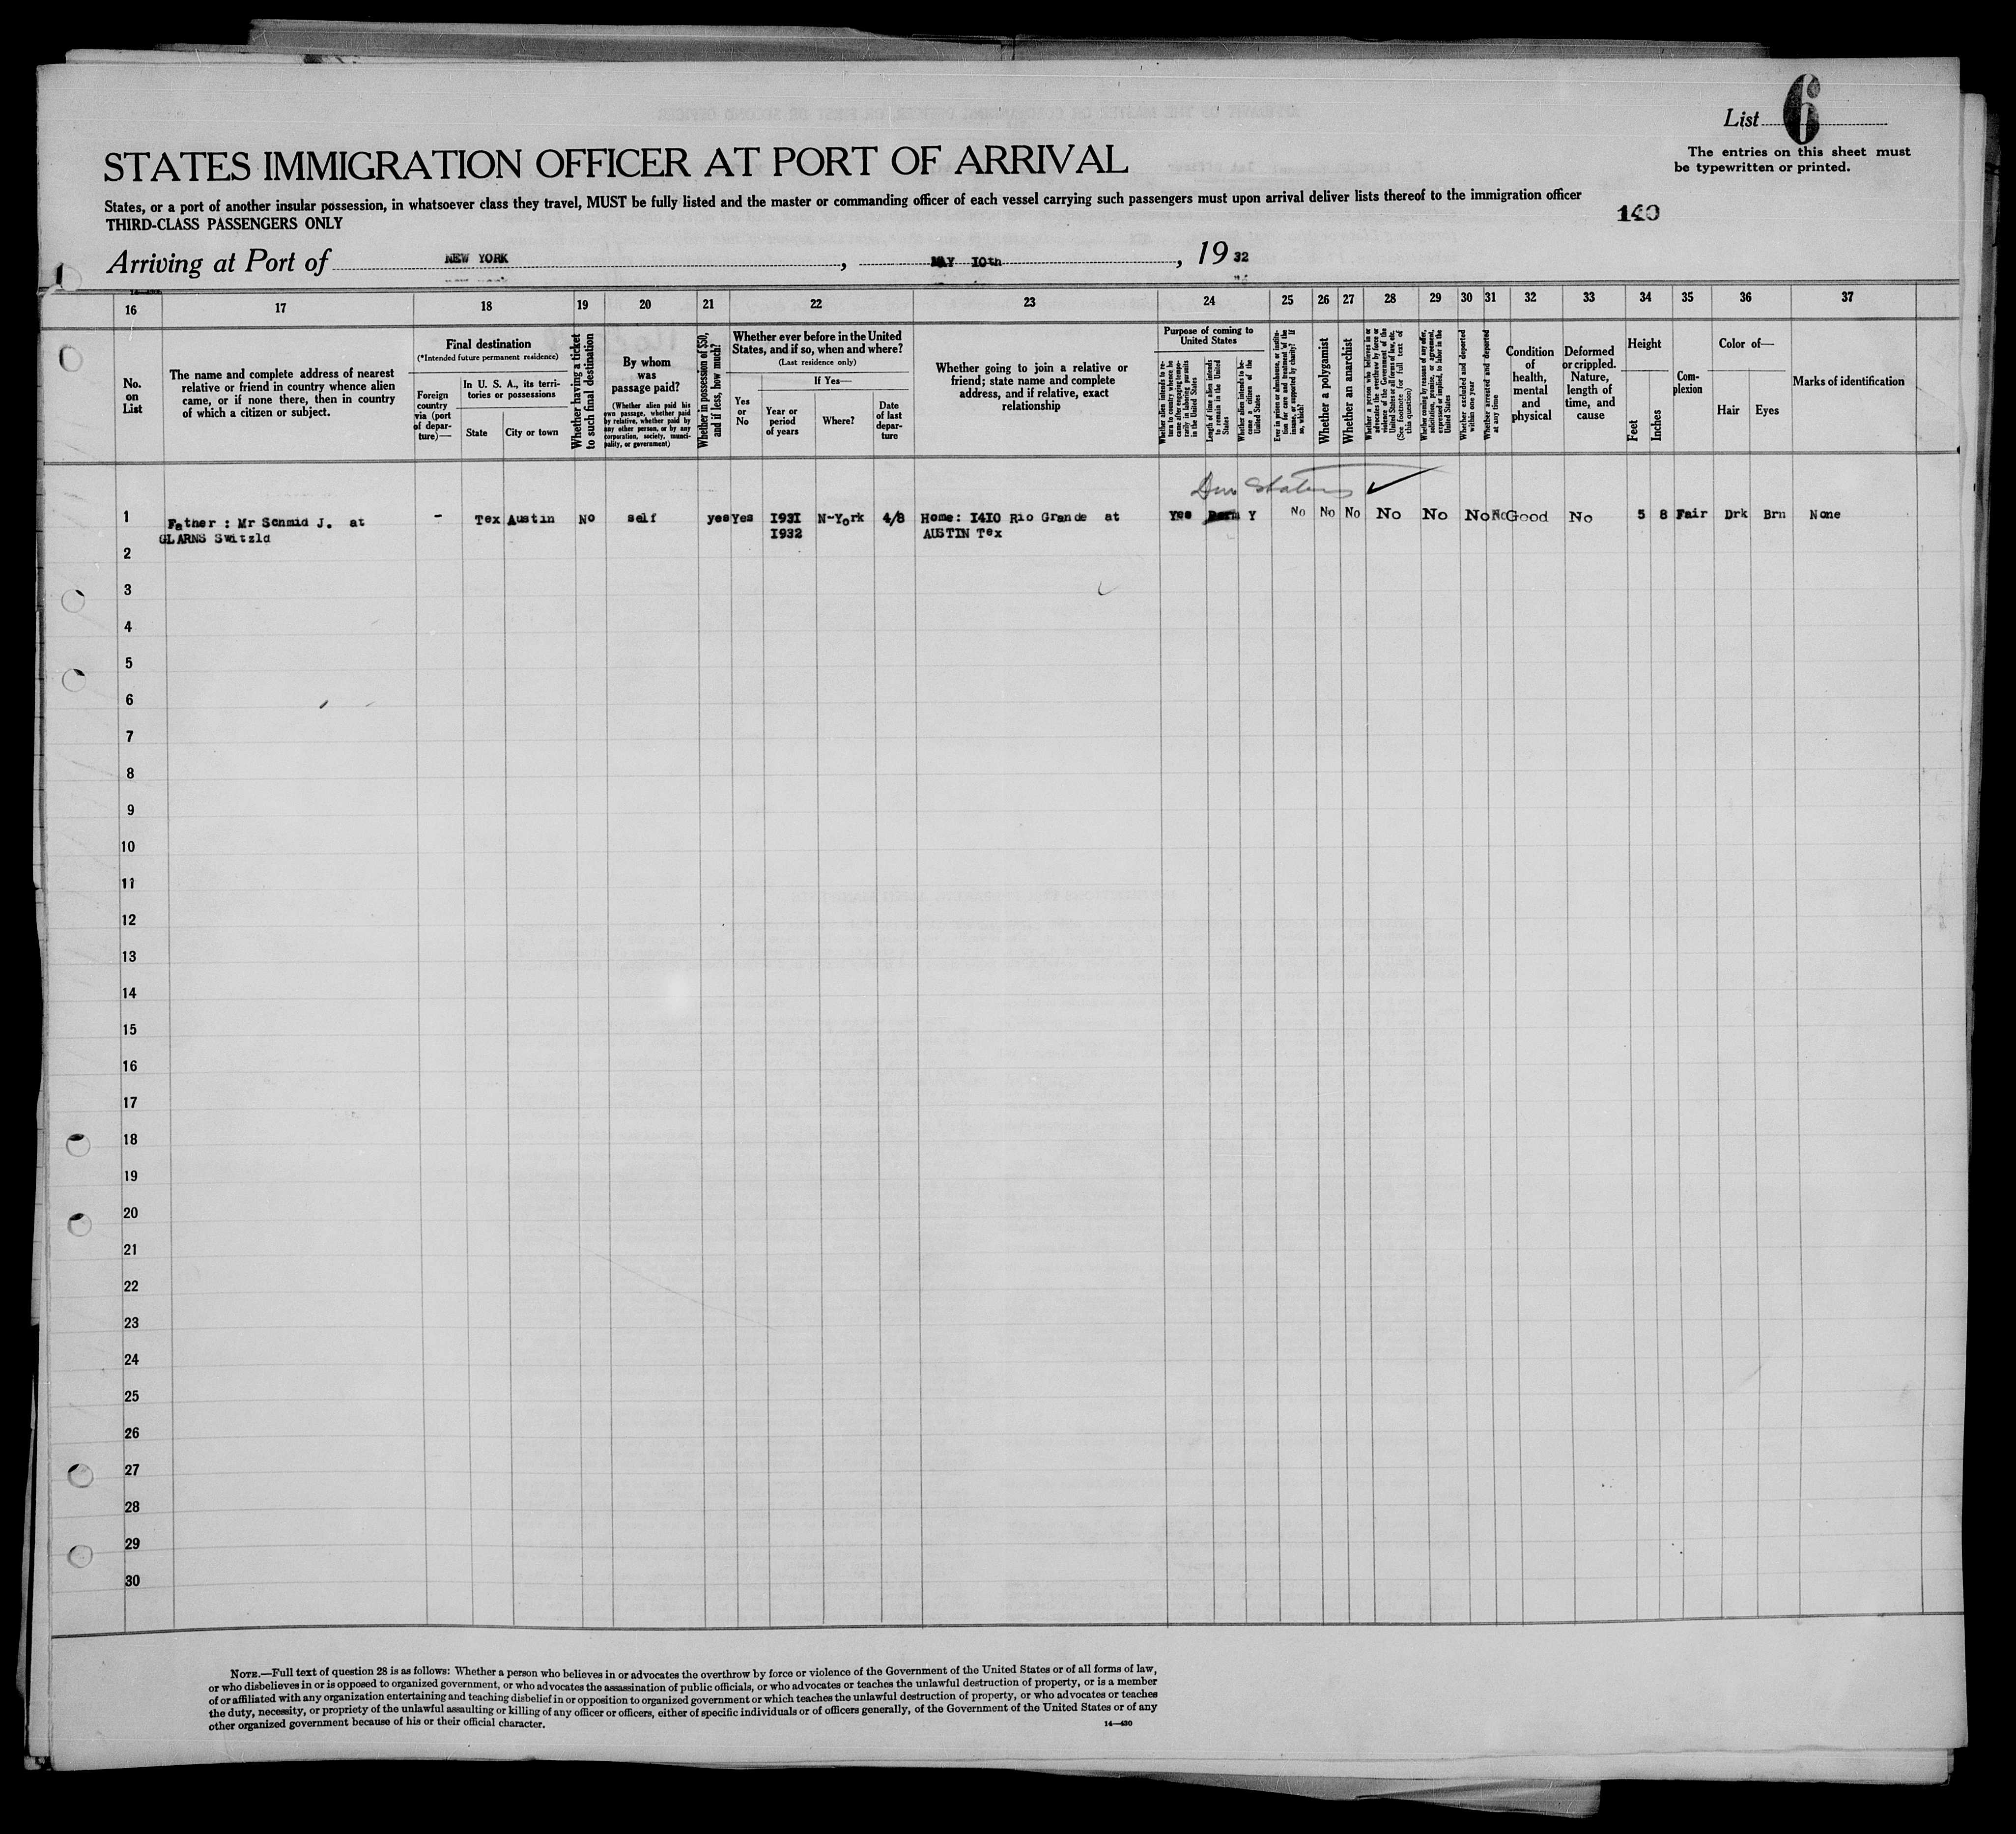 List 6
The entries on this sheet must
be typewritten or printed.
STATES IMMIGRATION OFFICER AT PORT OF ARRIVAL
States, or a port of another insular possession, in whatsoever class they travel, MUST be fully listed and the master or commanding officer of each vessel carrying such passengers must upon arrival deliver lists thereof to the immigration officer
THIRD-CLASS PASSENGERS ONLY
140
Arriving at Port of NEW YORK, MAY 10th, 19 32
16 17 18 19 20 21 22 23 24 25 26 27 28 29 30 31 32 33 34 35 36 37
No.
on
List
The name and complete address of nearest
relative or friend in country whence alien
came, or if none there, then in country
of which a citizen or subject.
Final destination
(*Intended future permanent residence)
Foreign
country
via (port
of depar-
ture)—
In U. S. A., its terri-
tories or possessions
State
City or town
Whether having a ticket
to such final destination
By whom
was
passage paid?
(Whether alien paid his
own passage, whether paid
by relative, whether paid by
any other person, or by any
corporation, society, munici-
pality, or government)
Whether in possession of $50,
and if less, how much?
Whether ever before in the United
States, and if so, when and where?
(Last residence only)
Yes
or
No
If Yes—
Year or
period
of years
Where?
Date
of last
depar-
ture
Whether going to join a relative or
friend; state name and complete
address, and if relative, exact
relationship
Purpose of coming to
United States
Whether alien intends to re-
turn to country whence he
came after engaging tempo-
rarily in laboring pursuits
in the United States
Length of time alien intends
to remain in the United
States
Whether alien intends to be-
come a citizen of the
United States
Ever in prison or almshouse, or institu-
tion for care and treatment of the
insane, or supported by charity? If
so, which?
Whether a polygamist
Whether an anarchist
Whether a person who believes in or
advocates the overthrow by force or
violence of the Government of the
United States or all forms of law, etc.
(See footnote for full text of
this question)
Whether coming by reasons of any offer,
solicitation, promise, or agreement,
expressed or implied, to labor in the
United States
Whether excluded and deported
within one year
Whether arrested and deported
at any time
Condition
of
health,
mental
and
physical
Deformed
or crippled.
Nature,
length of
time, and
cause
Height
Feet
Inches
Com-
plexion
Color of—
Hair
Eyes
Marks of identification
1 Father : Mr Schmid J. at - Tex Austin No self yes Yes 1931 N-York 4/8 Home: 1410 Rio Grande at Yes Y No No No No No No No Good No 5 8 Fair Drk Brn None
GLARNS Switzld 1932 AUSTIN Tex
2
3
4
5
6
7
8
9
10
11
12
13
14
15
16
17
18
19
20
21
22
23
24
25
26
27
28
29
30
NOTE.—Full text of question 28 is as follows: Whether a person who believes in or advocates the overthrow by force or violence of the Government of the United States or of all forms of law,
or who disbelieves in or is opposed to organized government, or who advocates the assassination of public officials, or who advocates or teaches the unlawful destruction of property, or is a member
of or affiliated with any organization entertaining and teaching disbelief in or opposition to organized government or which teaches the unlawful destruction of property, or who advocates or teaches
the duty, necessity, or propriety of the unlawful assaulting or killing of any officer or officers, either of specific individuals or of officers generally, of the Government of the United States or of any
other organized government because of his or their official character.
14—430